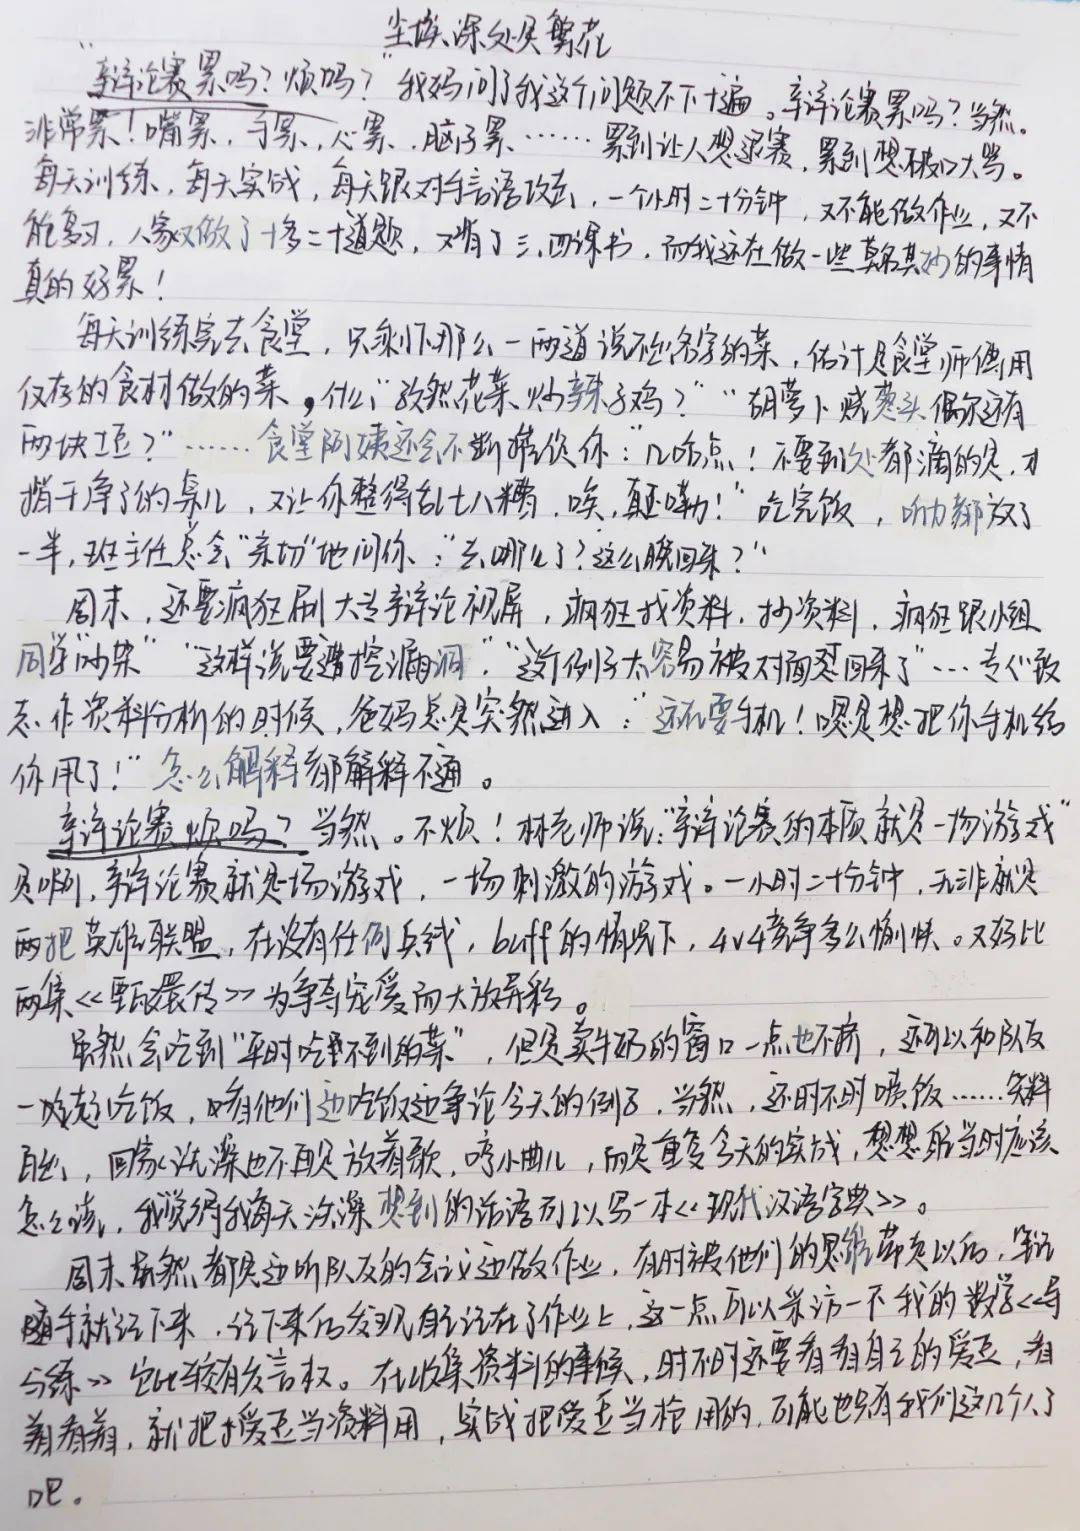 尘埃深处见繁花
"辩论赛累吗？烦吗？"我妈问了我这个问题不下十遍。辩论赛累吗？当然。
非常累！嘴累，手累，心累，脑子累……累到让人想退赛，累到想破口大骂。
每天训练，每天实战，每天跟对手言语攻击，一个小时二十分钟，又不能做作业，又不
能复习，人家又做了十多二十道题，又背了三、四课书，而我还在做一些莫名其妙的事情
真的好累！
每天训练完去食堂，只剩下那么一两道说不出名字的菜，估计是食堂师傅用
仅存的食材做的菜，什么"孜然花菜炒辣子鸡？""胡萝卜烧葱头偶尔还有
两块土豆？"……食堂阿姨还会不断催促你："几哈点！不要到处都滴的是，才
揩干净了的桌儿，又让你整得乱七八糟，唉，真还嘞！"吃完饭，听力都放了
一半，班主任总会"亲切"地问你："去哪儿了？这么晚回来？"
周末，还要疯狂刷大专辩论视屏，疯狂找资料，抄资料，疯狂跟小组
同学"吵架""这样说要遭挖漏洞""这个例子太容易被对面怼回来了"…专心致
志作资料分析的时候，爸妈总是突然进入："还在耍手机！嗯是想把你手机给
你甩了！"怎么解释都解释不通。
辩论赛烦吗？当然。不烦！林老师说："辩论赛的本质就是一场游戏"
是啊，辩论赛就是场游戏，一场刺激的游戏。一小时二十分钟，无非就是
两把英雄联盟，在没有任何兵线，buff的情况下，4v4竞争多么愉快。又好比
两集<<甄嬛传>>为争夺宠爱而大放异彩。
虽然会吃到"平时吃不到的菜"，但是卖牛奶的窗口一点也不挤，还可以和队友
一路走一路吃饭，看他们边吃饭边争论今天的例子，当然，还时不时喷饭……笑料
百出，回家洗澡也不再是放着歌，哼小曲儿，而是重复今天的实战，想想能当时应该
怎么该，我觉得我每天洗澡想到的话语可以写一本<<现代汉语字典>>。
周末虽然都是边听队友的会议边做作业，有时被他们的思维带走以后，笔记
随手就记下来，记下来后发现自己记在了作业上，这一点可以采访一下我的数学<<导
与练>>它比较有发言权。在收集资料的事候，时不时还要看看自己的爱豆，看
着看着，就把爱豆当资料用，实战把爱豆当枪用的，可能也只有我们这几个人了
吧。